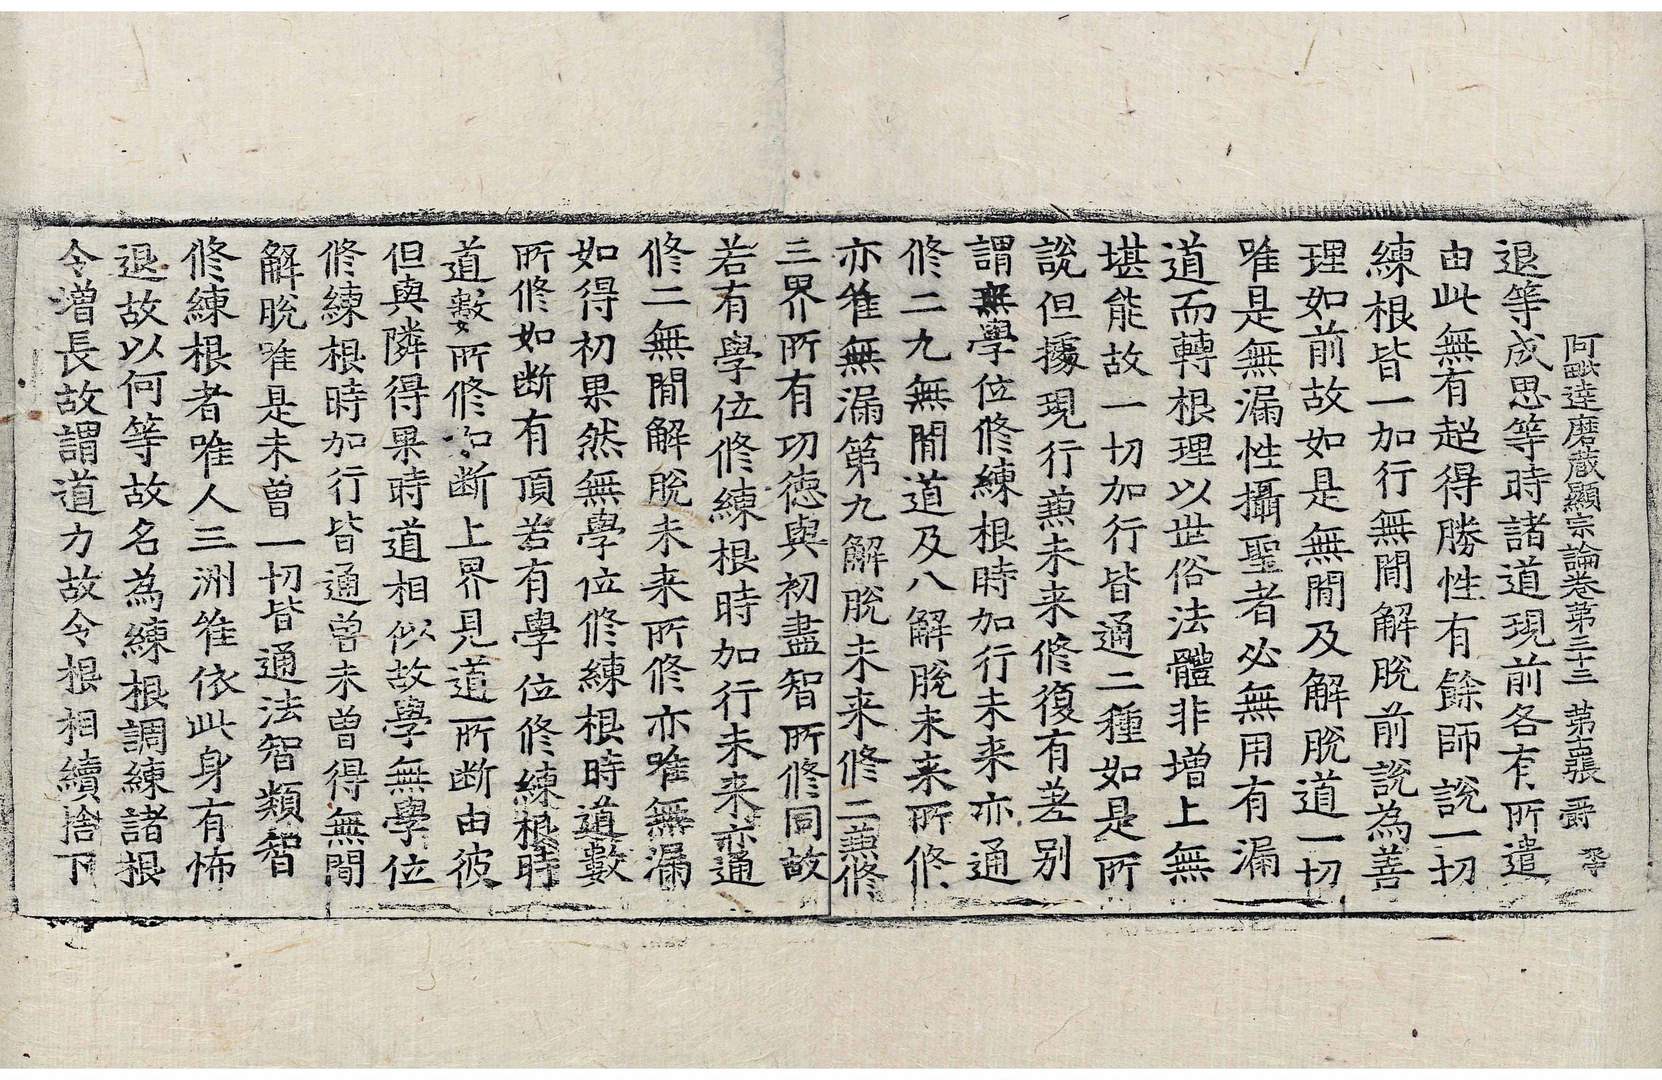 阿毗達磨蔵顯宗論卷苐三十三 苐五張 爵
退等成思等時諸道現前各有所遣
由此無有超得勝性有餘師說一切
練根皆一加行無閒解脫前說為善
理如前故如是無閒及解脫道一切
唯是無漏性攝聖者必無用有漏
道而轉根理以世俗法體非增上無
堪能故一切加行皆通二種如是所
說但據現行兼未来修復有差别
謂無學位修練根時加行未来亦通
修二九無閒道及八解脫未来所修
亦唯無漏第九解脫未来修二兼修
三界所有功德與初盡智所修同故
若有學位修練根時加行未来亦通
修二無閒解脫未来所修亦唯無漏
如得初果然無學位修練根時道數
所修如断有頂若有學位修練根時
道數所修如断上界見道所断由彼
但與隣得果時道相似故學無學位
修練根時加行皆通曾未曾得無閒
解脫唯是未曾一切皆通法智類智
修練根者唯人三洲唯依此身有怖
退故以何等故名為練根調練諸根
令增長故謂道力故令根相續捨下